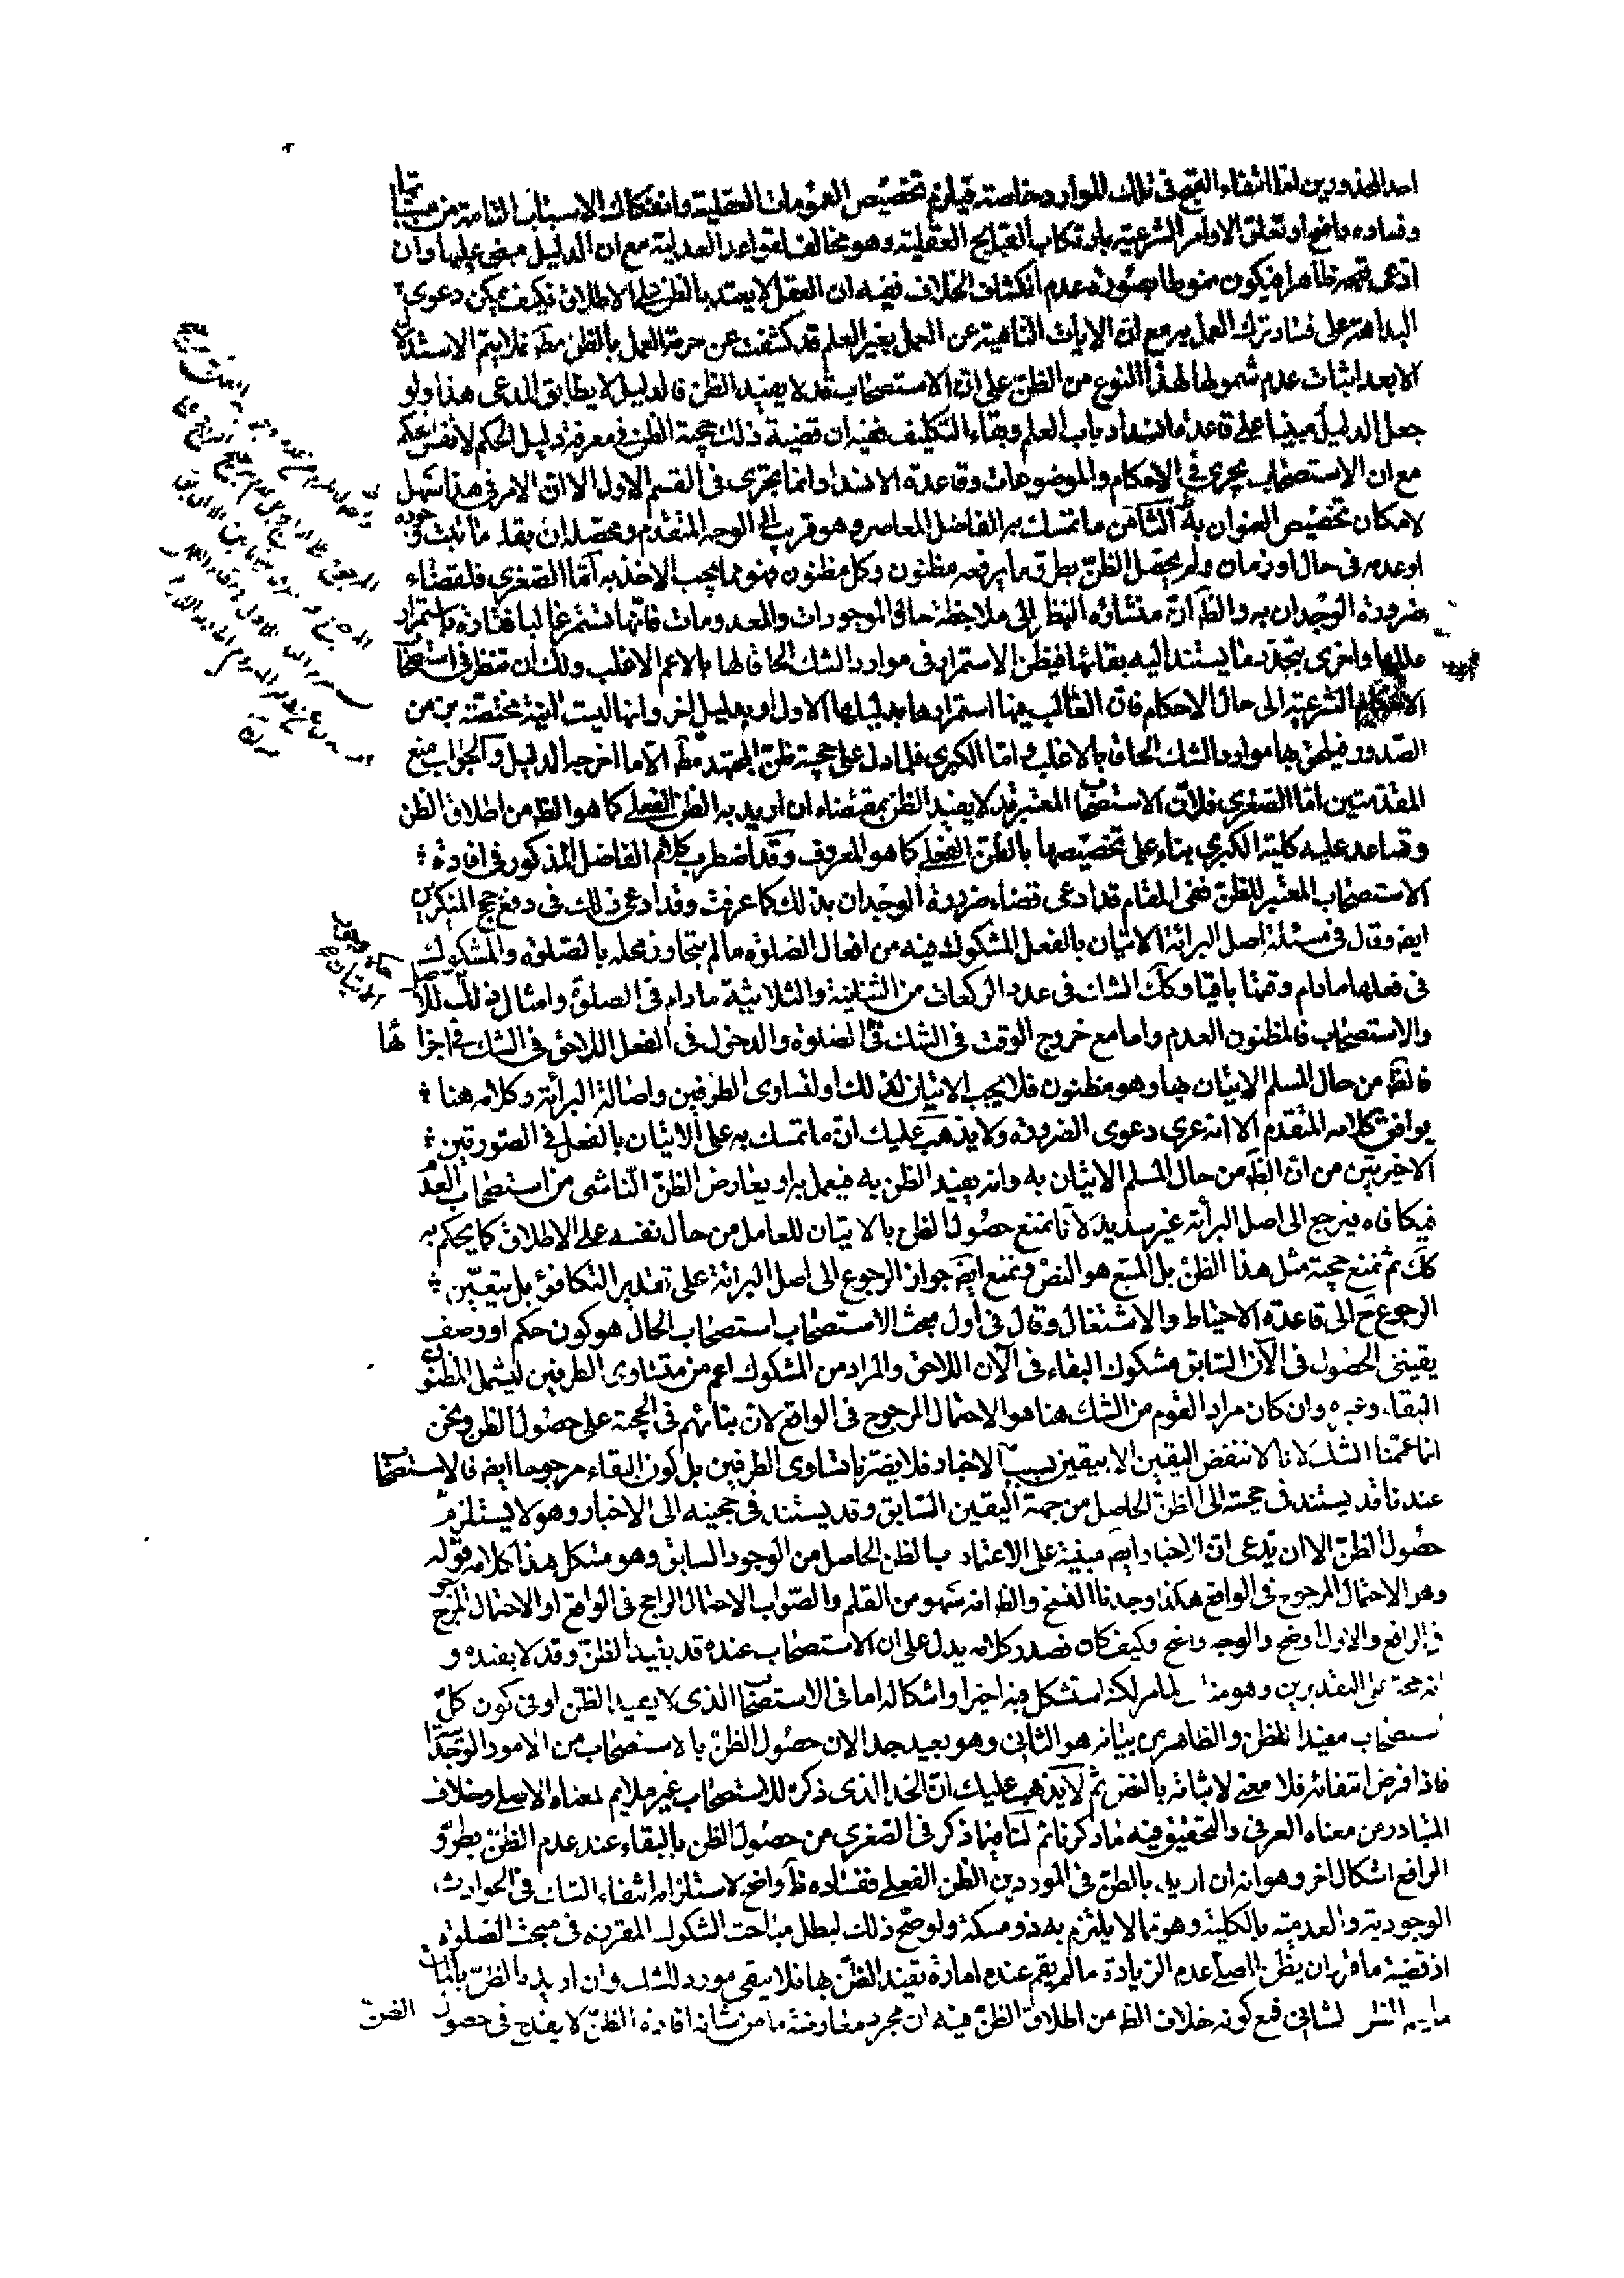 احد المحذورين اما انتفاء القبح فى تلك الموارد خاصة فيلزم تخصيص العمومات العقلية وانفكاك الاسباب التامة من مسبباتها
وفساده واضح او تعلق الاوامر الشرعية بارتكاب القبايح العقلية وهو مخالف لقواعد العدلية مع ان الدليل مبنى عليها وان
ادعى قبحه ظاهرا فيكون منوطا بصورة عدم انكشاف الخلاف ففيه ان العقل لا يعتد بالظن على الاطلاق فكيف يمكن دعوى
البداهة على فساد ترك العمل به مع ان الايات الناهية عن العمل بغير العلم قد كشفت عن حرمة العمل بالظن مطـ فلا يتم الاستدلال
الا بعد اثبات عدم شمولها لهذا النوع من الظن على ان الاستصحاب قد لا يفيد الظن فالدليل لا يطابق المدعى هذا ولو
جعل الدليل مبنيا على قاعدة انسداد باب العلم وبقاء التكليف ففيه ان قضية ذلك حجية الظن فى معرفة دليل الحكم لا نفس الحكم
مع ان الاستصحاب يجرى فى الاحكام والموضوعات وقاعدة الانسداد انما تجرى فى القسم الاول الا ان الامر فى هذا سهل
لامكان تخصيص العنوان به الثامن ما تمسك به الفاضل المعاصر وهو قريب الى الوجه المتقدم ومحصله ان يقال ما ثبت وجوده
او عدمه فى حال او زمان ولم يحصل الظن بطرو ما يرفعه مظنون وكل مظنون فهو مما يجب الاخذ به اما الصغرى فلقضاء
ضرورة الوجدان به والظـ ان منشأه النظر الى ملاحظة حال الموجودات والمعدومات فانها تستمر غالبا فتارة باستمرار
عللها واخرى بتجدد ما يستند اليه بقائها فيظن الاستمرار فى موارد الشك الحاقا لها بالاعم الاغلب ولك ان تنظر فى استصحاب
الاحكام الشرعية الى حال الاحكام فان الغالب فيها استمرارها بدليلها الاول او بدليل اخر وانها ليست انية مختصة بزمن
الصدور فيلحق بها موارد الشك الحاقا بالاغلب واما الكبرى فلما دل على حجية ظن المجتهد مطـ الا ما اخرجه الدليل والجواب منع
المقدمتين اما الصغرى فلان الاستصحاب المعتبر قد لا يفيد الظن بمقتضاه ان اريد به الظن الفعلى كما هو الظـ من اطلاق الظن
وتساعد عليه كلية الكبرى بناء على تخصيصها بالظن الفعلى كما هو المعروف وقد اضطرب كلام الفاضل المذكور فى افادة
الاستصحاب المعتبر للظن ففى المقام قد ادعى قضاء ضرورة الوجدان بذلك كما عرفت وقد ادعى ذلك فى دفع حجج المنكرين
ايضـ وقال فى مسئلة اصل البرائة الاتيان بالفعل المشكوك فيه من افعال الصلوة ما لم يتجاوز محله بالصلوة والمشكوك
فى فعلها مادام وقتها باقيا وكك الشك فى عدد الركعات من الثنائية والثلاثية مادام فى الصلوة وامثال ذلك للاصل
والاستصحاب فالمظنون العدم واما مع خروج الوقت فى الشك فى الصلوة والدخول فى الفعل اللاحق فى الشك فى اجزائها
فالظـ من حال المسلم الاتيان بها وهو مظنون فلا يجب الاتيان لذلك او لتساوى الطرفين واصالة البرائة وكلامه هنا
يوافق كلامه المتقدم الا انه عرى دعوى الضرورة ولا يذهب عليك ان ما تمسك به على الاتيان بالفعل فى الصورتين
الاخيرتين من ان الظـ من حال المسلم الاتيان به وانه يفيد الظن به فيعمل به او يعارض الظن الناشى من استصحاب العدم
فيكافاه فيرجع الى اصل البرائة غير سديد لانا نمنع حصول الظن بالاتيان للعامل من حال نفسه على الاطلاق كما يحكم به
كك ثم نمنع حجية مثل هذا الظن بل المتبع هو النص ونمنع ايضـ جواز الرجوع الى اصل البرائة على تقدير التكافؤ بل يتعين
الرجوع ح الى قاعدة الاحتياط والاشتغال وقال فى اول مبحث الاستصحاب استصحاب الحال هو كون حكم او وصف
يقينى الحصول فى الآن السابق مشكوك البقاء فى الآن اللاحق والمراد من المشكوك اعم من متساوى الطرفين ليشمل المظنون
البقاء وغيره وان كان مراد القوم من الشك هنا هو الاحتمال المرجوح فى الواقع لان بنائهم فى الحجية على حصول الظن ونحن
انما عممنا الشك لانا لا ننقض اليقين الا بيقين بسبب الاخبار فلا يضرنا تساوى الطرفين بل كون البقاء مرجوحا ايضـ فالاستصحاب
عندنا قد يستند فى حجيته الى الظن الحاصل من جهة اليقين السابق وقد يستند فى حجيته الى الاخبار وهو لا يستلزم
حصول الظن الا ان يدعى ان الاخبار ايضـ مبنية على الاعتماد بالظن الحاصل من الوجود السابق وهو مشكل هذا كلامه قوله
وهو الاحتمال المرجوح فى الواقع هكذا وجدنا النسخ والظـ انه سهو من القلم والصواب الاحتمال الراجح فى الواقع او الاحتمال المرجوح
فى الرافع والاول اوضح والوجه واضح وكيف كان فصدر كلامه يدل على ان الاستصحاب عنده قد يفيد الظن وقد لا يفيده و
انه حجة على التقديرين وهو مناف لما مر لكنه استشكل فيه اخيرا واشكاله اما فى الاستصحاب الذى لا يفيد الظن او فى كون كل
استصحاب مفيدا للظن والظاهر من بيانه هو الثانى وهو بعيد جدا لان حصول الظن بالاستصحاب من الامور الوجدانية
فاذا فرض انتفائه فلا معنى لاثباته بالنص ثم لا يذهب عليك ان الحد الذى ذكره للاستصحاب غير ملايم لمعناه الاصلى وخلاف
المتبادر من معناه العرفى والتحقيق فيه ما ذكرنا ثم لنا فيما ذكر فى الصغرى من حصول الظن بالبقاء عند عدم الظن بطرو
الرافع اشكال اخر وهو انه ان اريد بالظن فى الموردين الظن الفعلى ففساده ظـ واضح لاستلزامه انتفاء الشك فى الحوادث
الوجودية والعدمية بالكلية وهو مما لا يلتزم به ذو مسكة ولو صح ذلك لبطل مباحث الشكوك المقررة فى مبحث الصلوة
اذ قضية ما قرر ان يظن المصلى عدم الزيادة ما لم يقم عنده امارة تفيد الظن بها فلا يبقى مورد للشك وان اريد بالظن بانتفاء
الظن الشانى فمع كونه خلاف الظـ من اطلاق الظن فيه ان مجرد معارضة ما من شانه افادة الظن لا يقدح فى حصول الظن